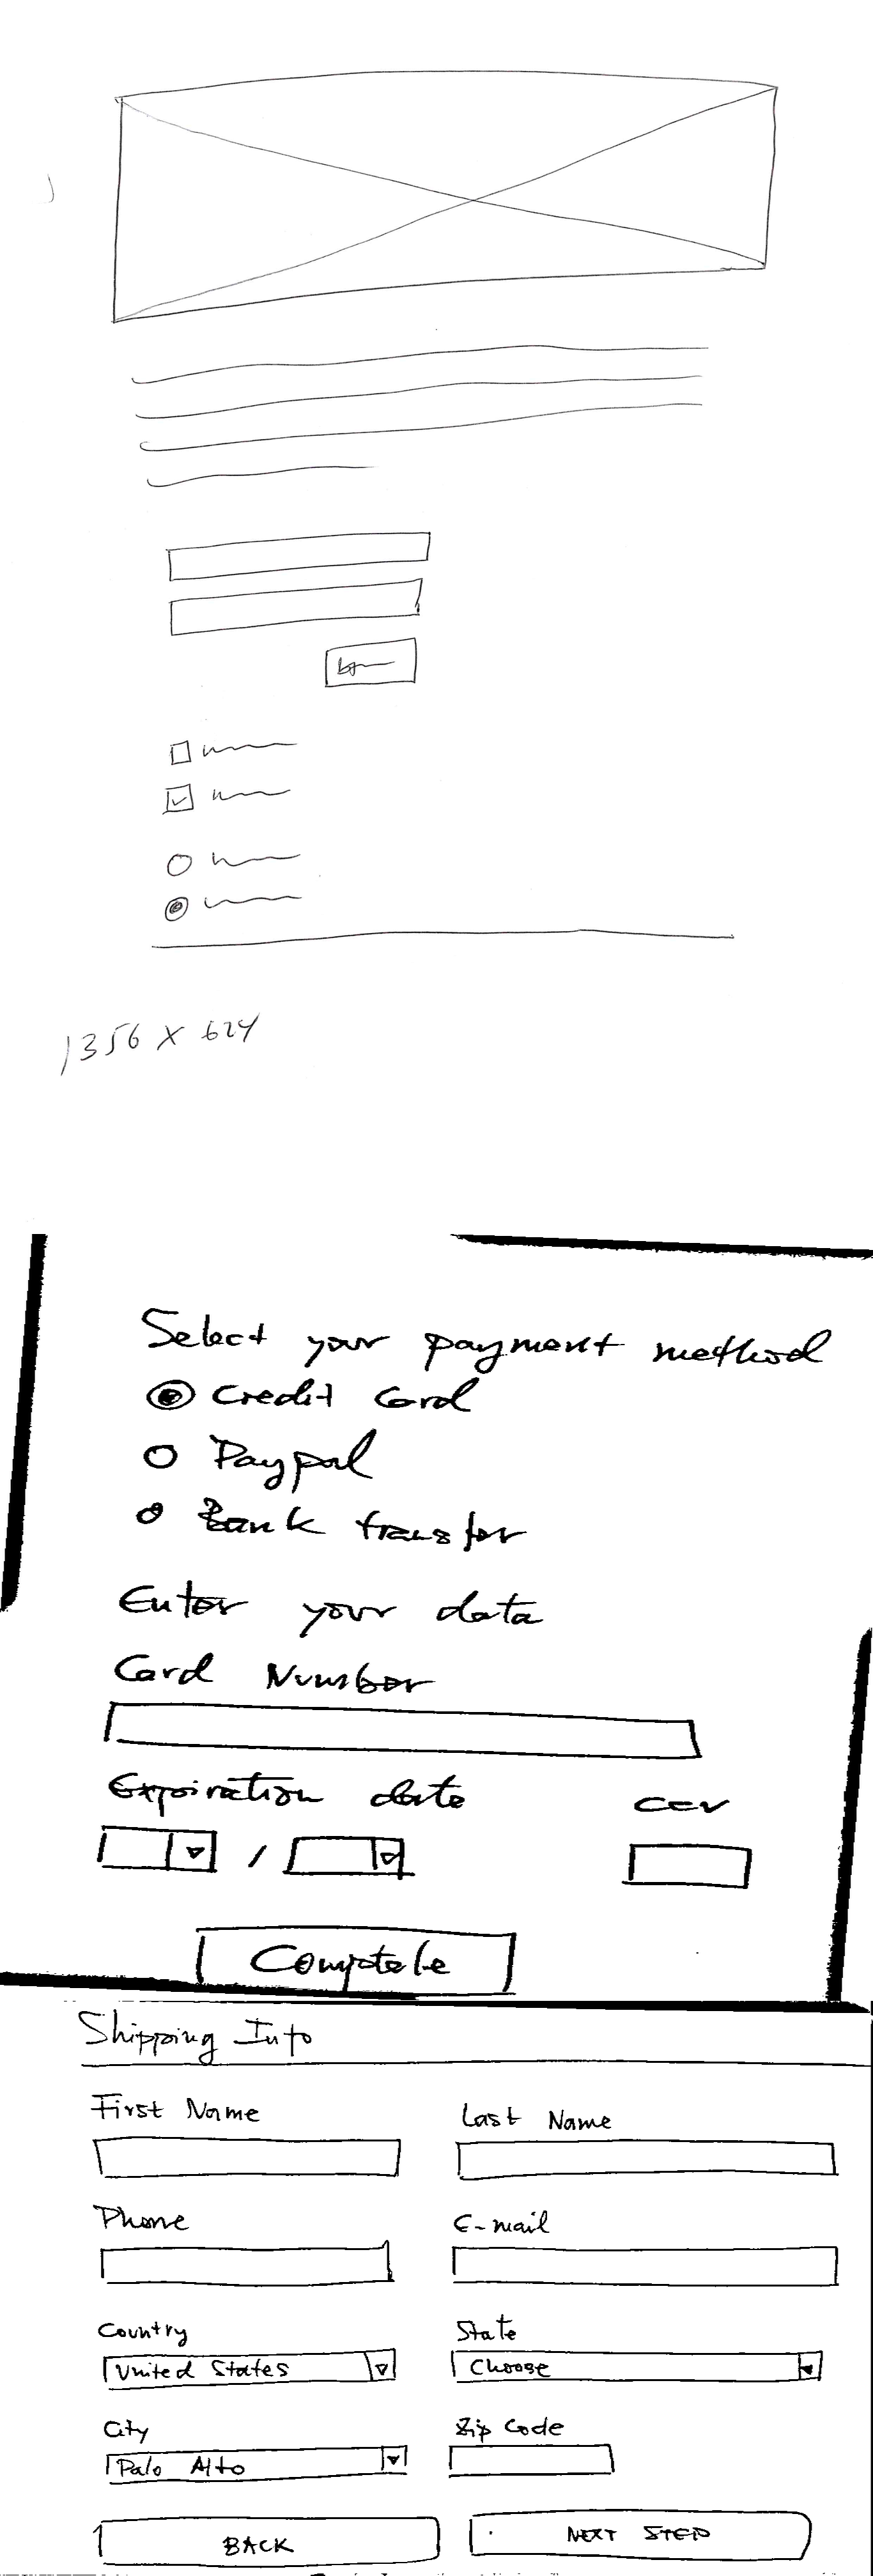 1356 X 624
Select your payment method
Credit Card
Paypal
Bank transfer
Enter your data
Card Number
Expiration date CCV
/
Complete
Shipping Info
First Name Last Name
Phone E-mail
Country State
United States Choose
City Zip Code
Palo Alto
BACK NEXT STEP